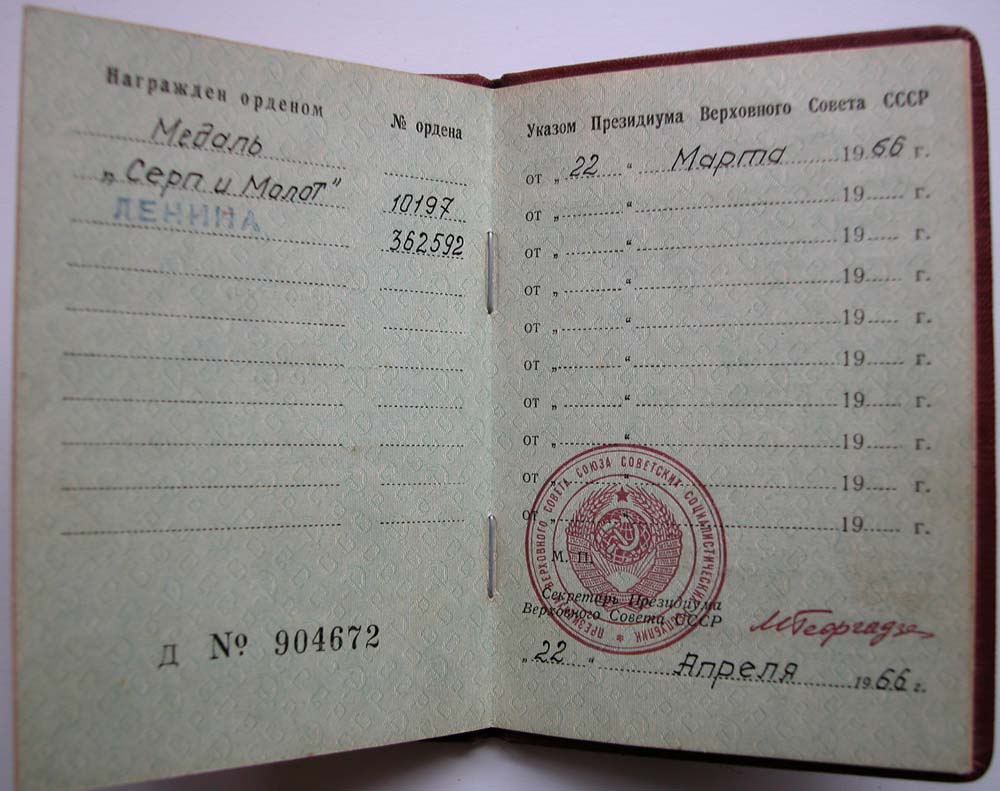 Награжден орденом
№ ордена
Медаль
„Серп и Молот"
10197
ЛЕНИНА
362592
Д № 904672
Указом Президиума Верховного Совета СССР
от „ 22 “ Марта 1966 г.
от „ “ 19 г.
от „ “ 19 г.
от „ “ 19 г.
от „ “ 19 г.
от „ “ 19 г.
от „ “ 19 г.
от „ “ 19 г.
от „ “ 19 г.
от „ “ 19 г.
ПРЕЗИДИУМ ВЕРХОВНОГО СОВЕТА СОЮЗА СОВЕТСКИХ СОЦИАЛИСТИЧЕСКИХ РЕСПУБЛИК *
М. П.
Секретарь Президиума
Верховного Совета СССР
МГеоргадзе
„ 22 “ Апреля 1966 г.